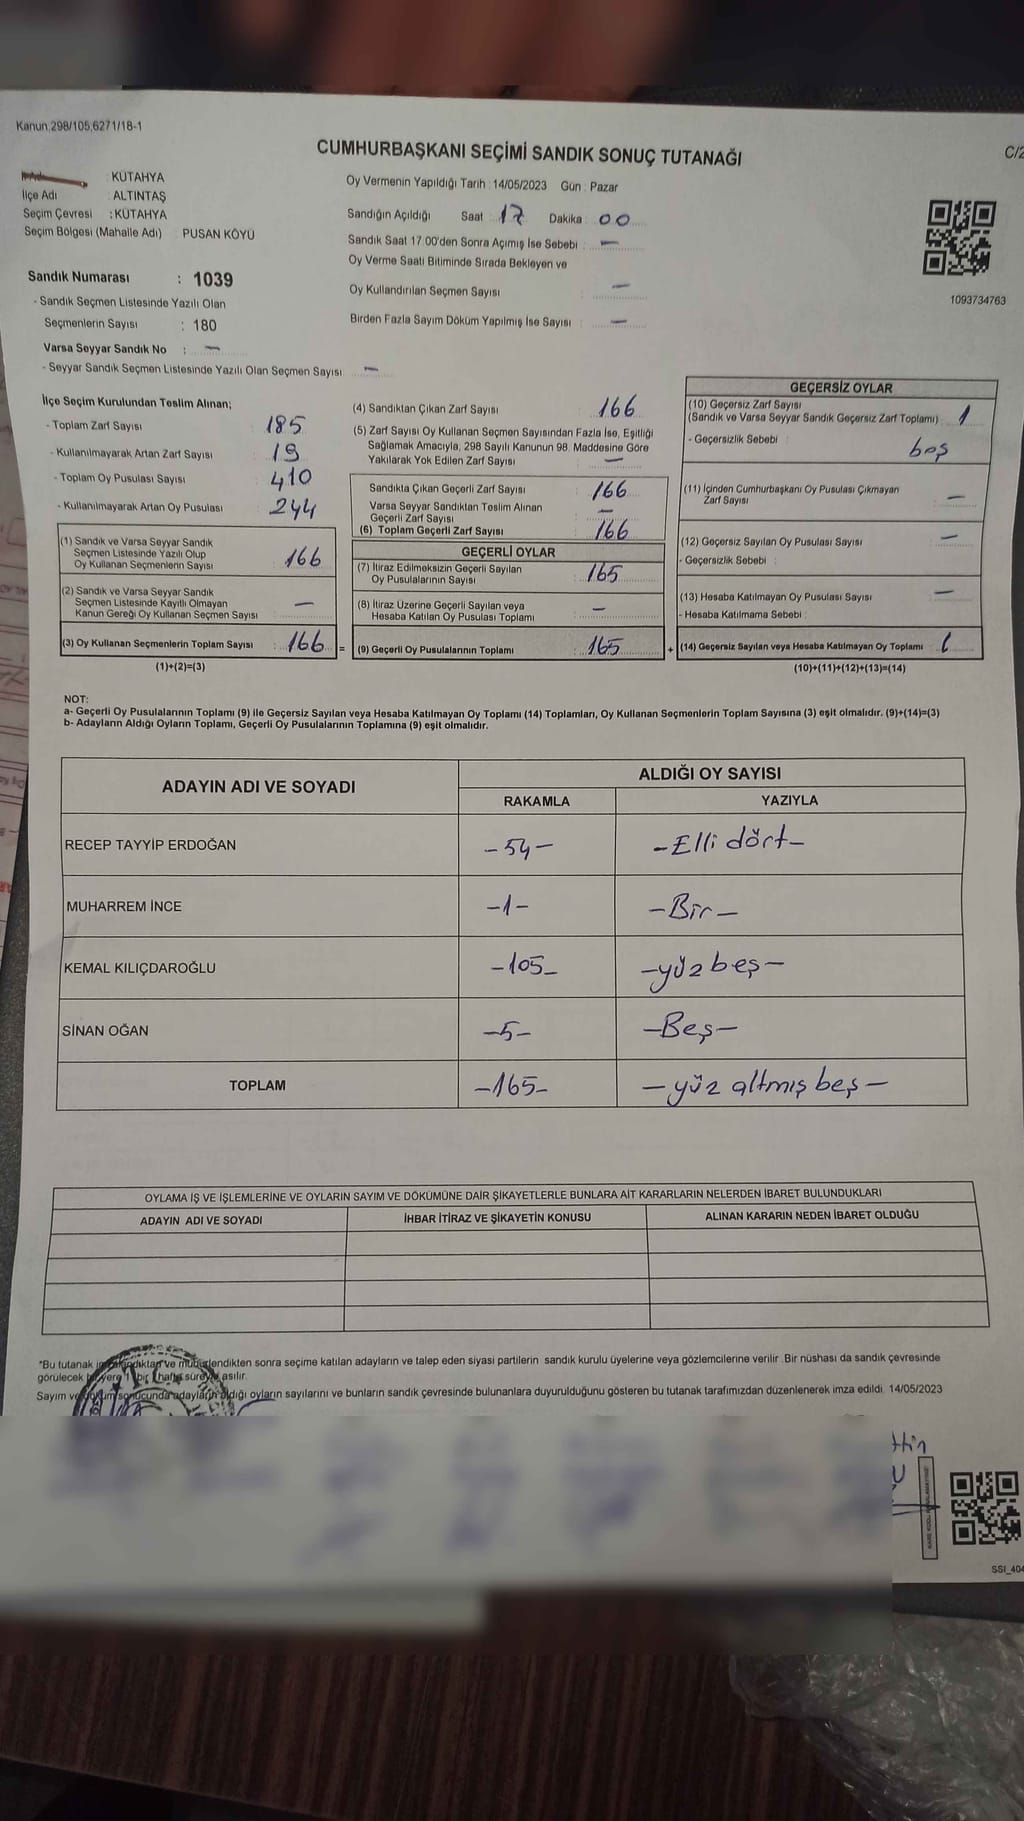 Kanun.298/105,6271/18-1
CUMHURBAŞKANI SEÇİMİ SANDIK SONUÇ TUTANAĞI
C/2
: KÜTAHYA
İlçe Adı : ALTINTAŞ
Seçim Çevresi : KÜTAHYA
Seçim Bölgesi (Mahalle Adı) PUSAN KÖYÜ
Sandık Numarası : 1039
- Sandık Seçmen Listesinde Yazılı Olan
Seçmenlerin Sayısı : 180
Varsa Seyyar Sandık No : —
- Seyyar Sandık Seçmen Listesinde Yazılı Olan Seçmen Sayısı —
Oy Vermenin Yapıldığı Tarih : 14/05/2023 Gün : Pazar
Sandığın Açıldığı Saat 17 Dakika 00
Sandık Saat 17.00'den Sonra Açımış İse Sebebi : —
Oy Verme Saati Bitiminde Sırada Bekleyen ve
Oy Kullandırılan Seçmen Sayısı : —
Birden Fazla Sayım Döküm Yapılmış İse Sayısı : —
1093734763
İlçe Seçim Kurulundan Teslim Alınan;
- Toplam Zarf Sayısı : 185
- Kullanılmayarak Artan Zarf Sayısı : 19
- Toplam Oy Pusulası Sayısı : 410
- Kullanılmayarak Artan Oy Pusulası : 244
(1) Sandık ve Varsa Seyyar Sandık
Seçmen Listesinde Yazılı Olup
Oy Kullanan Seçmenlerin Sayısı : 166
(2) Sandık ve Varsa Seyyar Sandık
Seçmen Listesinde Kayıtlı Olmayan
Kanun Gereği Oy Kullanan Seçmen Sayısı : —
(3) Oy Kullanan Seçmenlerin Toplam Sayısı : 166 =
(1)+(2)=(3)
(4) Sandıktan Çıkan Zarf Sayısı : 166
(5) Zarf Sayısı Oy Kullanan Seçmen Sayısından Fazla İse, Eşitliği
Sağlamak Amacıyla, 298 Sayılı Kanunun 98. Maddesine Göre
Yakılarak Yok Edilen Zarf Sayısı : —
Sandıkta Çıkan Geçerli Zarf Sayısı : 166
Varsa Seyyar Sandıktan Teslim Alınan
Geçerli Zarf Sayısı : —
(6) Toplam Geçerli Zarf Sayısı : 166
GEÇERLİ OYLAR
(7) İtiraz Edilmeksizin Geçerli Sayılan
Oy Pusulalarının Sayısı : 165
(8) İtiraz Üzerine Geçerli Sayılan veya
Hesaba Katılan Oy Pusulası Toplamı : —
(9) Geçerli Oy Pusulalarının Toplamı : 165 +
GEÇERSİZ OYLAR
(10) Geçersiz Zarf Sayısı
(Sandık ve Varsa Seyyar Sandık Geçersiz Zarf Toplamı) : 1
- Geçersizlik Sebebi : boş
(11) İçinden Cumhurbaşkanı Oy Pusulası Çıkmayan
Zarf Sayısı : —
(12) Geçersiz Sayılan Oy Pusulası Sayısı : —
- Geçersizlik Sebebi :
(13) Hesaba Katılmayan Oy Pusulası Sayısı : —
- Hesaba Katılmama Sebebi :
(14) Geçersiz Sayılan veya Hesaba Katılmayan Oy Toplamı : 1
(10)+(11)+(12)+(13)=(14)
NOT:
a- Geçerli Oy Pusulalarının Toplamı (9) ile Geçersiz Sayılan veya Hesaba Katılmayan Oy Toplamı (14) Toplamları, Oy Kullanan Seçmenlerin Toplam Sayısına (3) eşit olmalıdır. (9)+(14)=(3)
b- Adayların Aldığı Oyların Toplamı, Geçerli Oy Pusulalarının Toplamına (9) eşit olmalıdır.
ADAYIN ADI VE SOYADI ALDIĞI OY SAYISI
RAKAMLA YAZIYLA
RECEP TAYYİP ERDOĞAN -54- -Elli dört-
MUHARREM İNCE -1- -Bir-
KEMAL KILIÇDAROĞLU -105- -yüz beş-
SİNAN OĞAN -5- -Beş-
TOPLAM -165- -yüz altmış beş-
OYLAMA İŞ VE İŞLEMLERİNE VE OYLARIN SAYIM VE DÖKÜMÜNE DAİR ŞİKAYETLERLE BUNLARA AİT KARARLARIN NELERDEN İBARET BULUNDUKLARI
ADAYIN ADI VE SOYADI İHBAR İTİRAZ VE ŞİKAYETİN KONUSU ALINAN KARARIN NEDEN İBARET OLDUĞU
*Bu tutanak ve mühürlendikten sonra seçime katılan adayların ve talep eden siyasi partilerin sandık kurulu üyelerine veya gözlemcilerine verilir. Bir nüshası da sandık çevresinde
görülecek bir yere 1 bir hafta süreyle asılır.
Sayım ve döküm sonucunda adayların aldığı oyların sayılarını ve bunların sandık çevresinde bulunanlara duyurulduğunu gösteren bu tutanak tarafımızdan düzenlenerek imza edildi. 14/05/2023
SSI_404